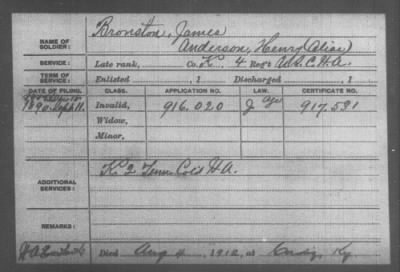 NAME OF SOLDIER: Bronston, James
Anderson, Henry (Alias)
SERVICE: Late rank, Co. K. 4 Reg't U.S.C.H.A.
TERM OF SERVICE: Enlisted , 1 Discharged , 1
DATE OF FILING. CLASS. APPLICATION NO. LAW. CERTIFICATE NO.
1890 Sept 11. Invalid, 916.020 917.531
Widow,
Minor,
ADDITIONAL SERVICES: K 2 Tenn Cold H.A.
REMARKS:
Died Aug 4, 1912, at Ky